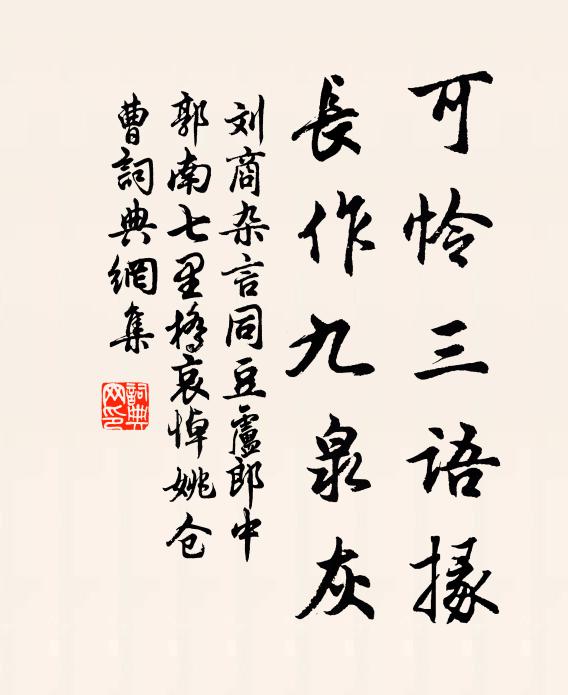 可怜三语掾
長作九泉灰
刘商杂言同豆盧郎中
郭南七里橋哀悼姚仓
曹詞典網集
詞典网印